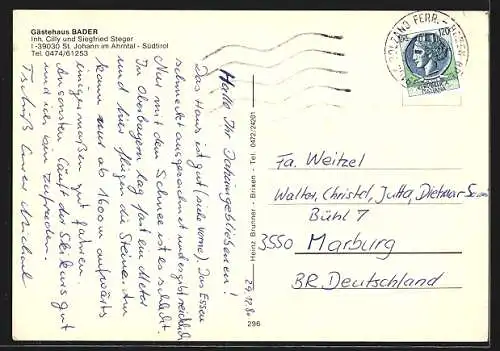 Gästehaus BADER
Inh. Cilly und Siegfried Steger
I-39030 St. Johann im Ahrntal - Südtirol
Tel. 0474/61253
BOLZANO FERR.
120
29.12.80
Hallo Ihr Daheimgebliebenen!
Das Haus ist gut (siehe vorne). Das Essen
schmeckt ausgezeichnet und es gibt reichlich
Nur mit dem Schnee ist es schlecht.
In Oberbayern lag fast ein Meter
und hier fliegen die Steine. Man
kann nur ab 1600m aufwärts
einigermaßen gut fahren.
Ansonsten läuft der Skikurs gut
und ich bin zufrieden.
Tschüß Euer Michael
Heinz Brunner - Brixen - Tel.
296
Fa. Weitzel
Walter, Christel, Jutta, Dietmar
Bühl 7
3550 Marburg
BR. Deutschland